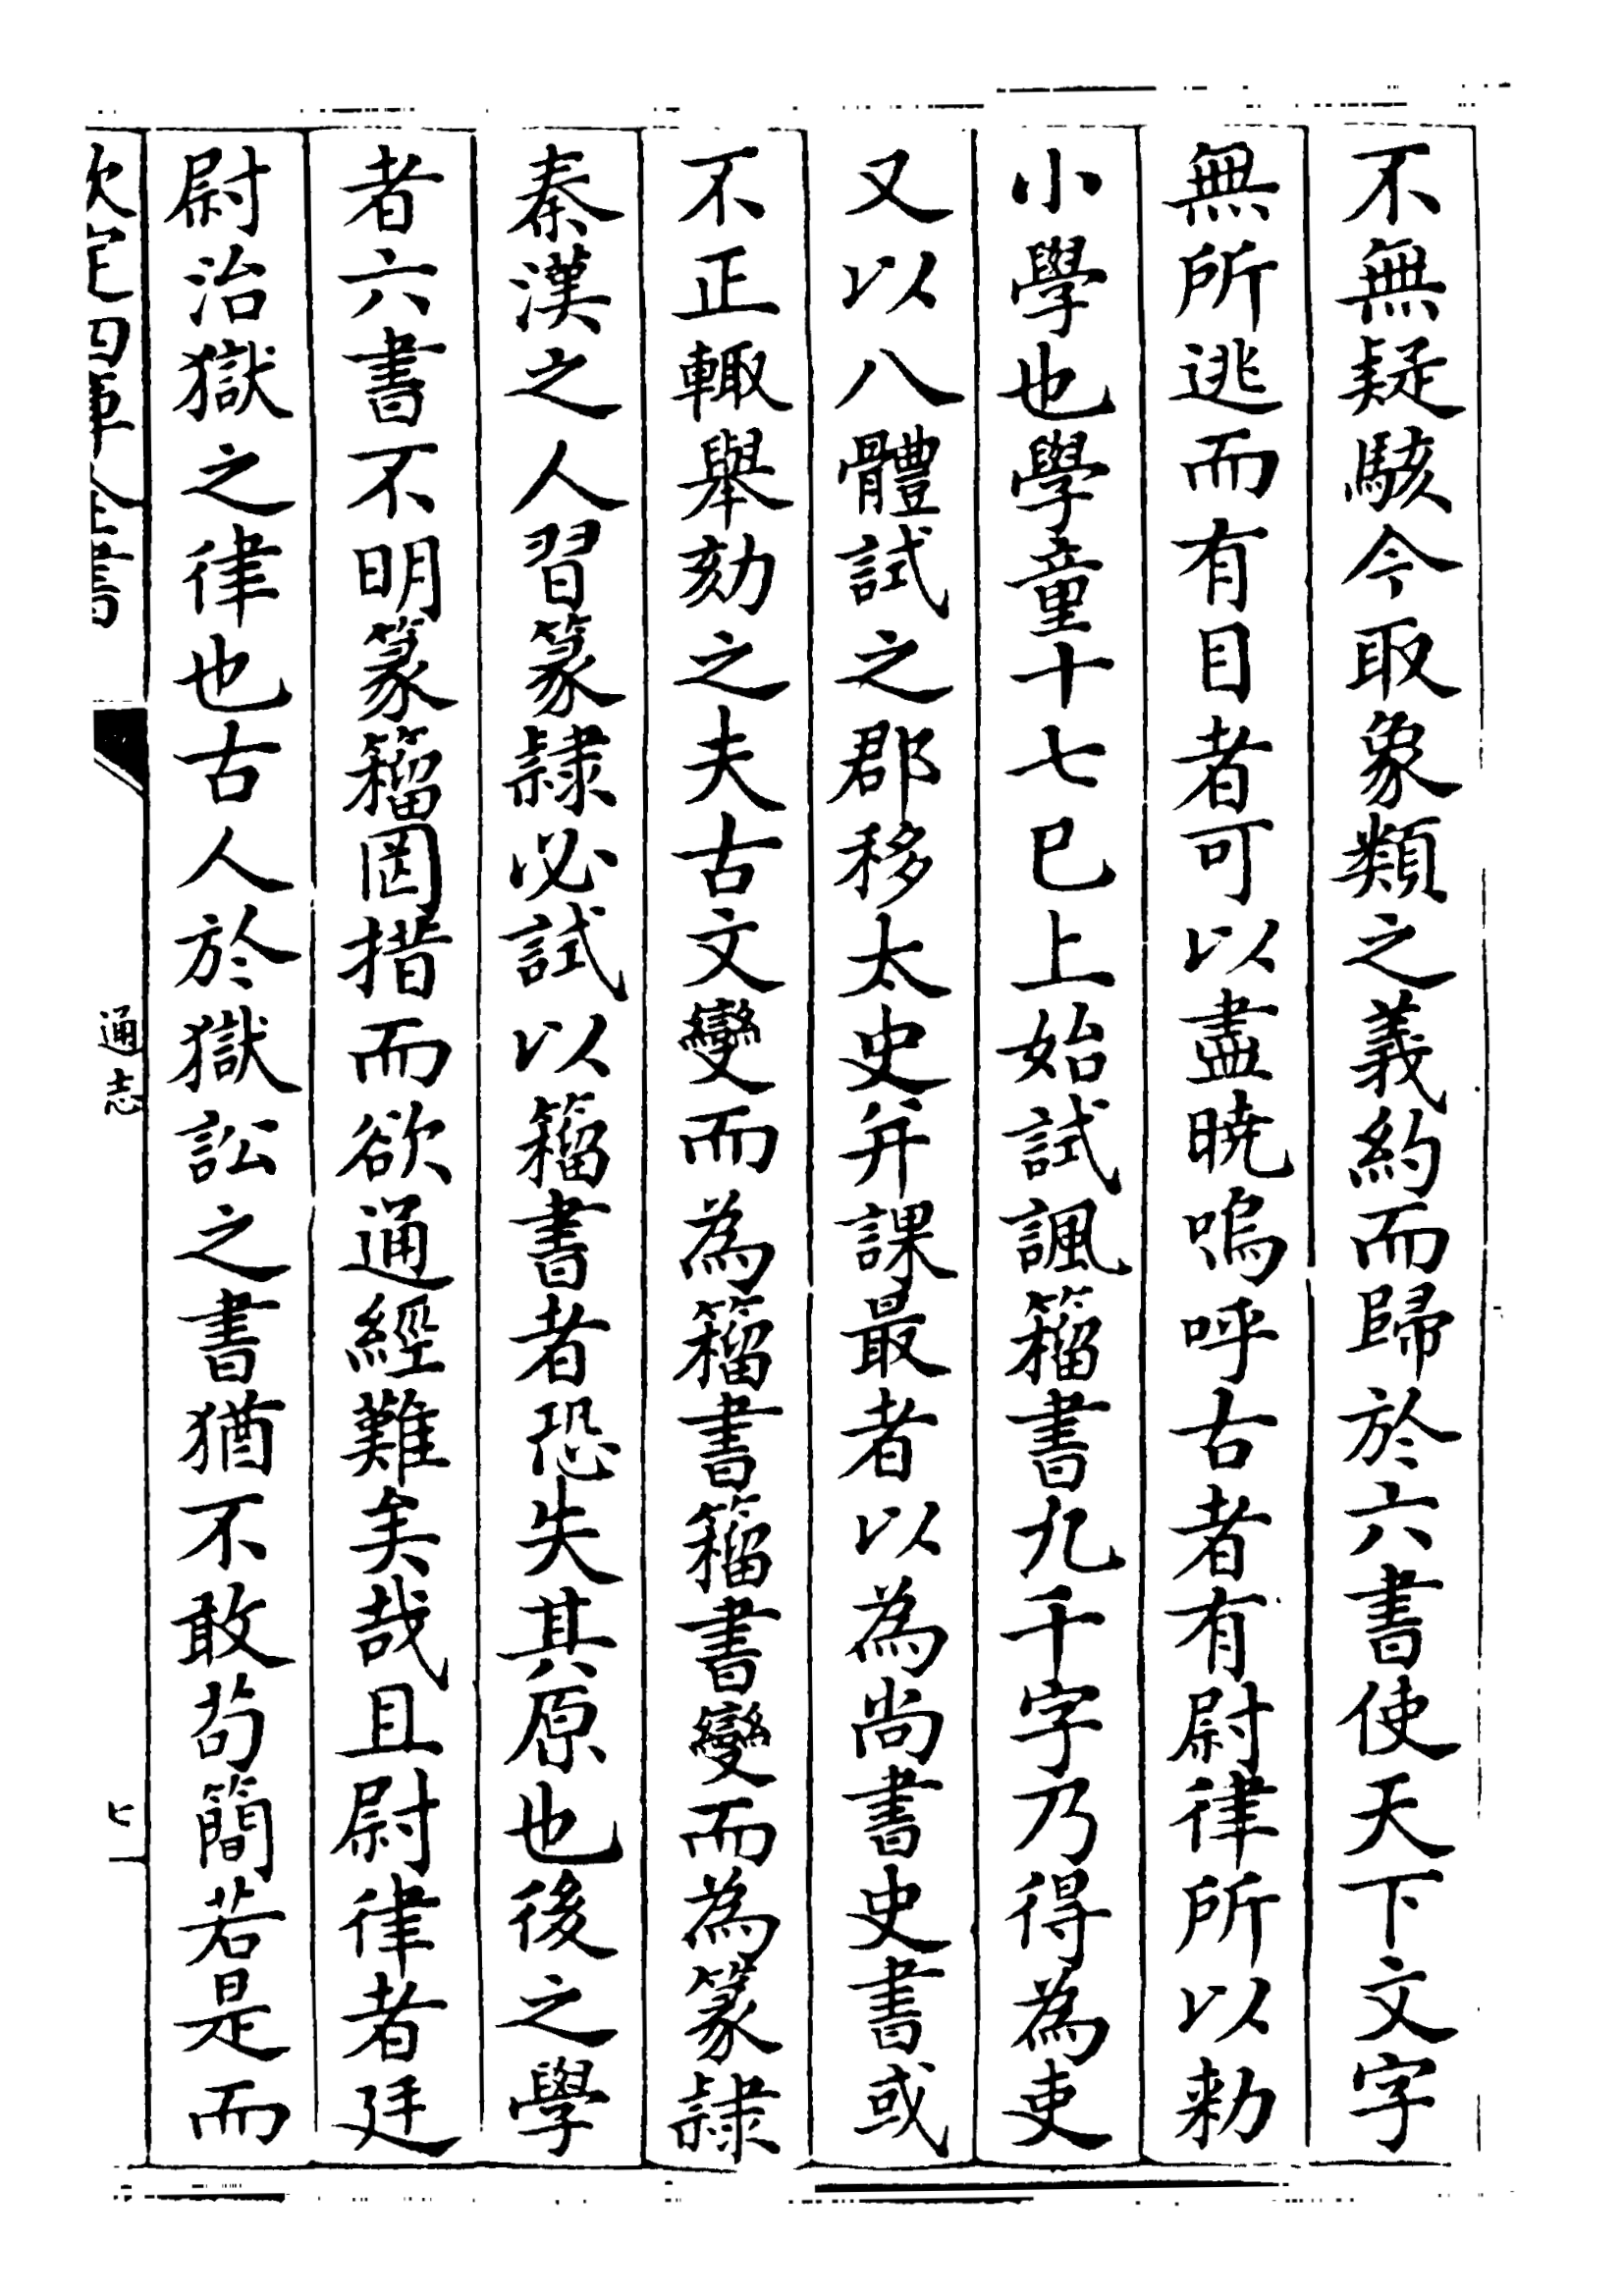 不無疑駭今取象類之義約而歸於六書使天下文字
無所逃而有目者可以盡曉嗚呼古者有尉律所以勑
小學也學童十七已上始試諷籀書九千字乃得為吏
又以八體試之郡移太史并課最者以為尚書史書或
不正輙舉劾之夫古文變而為籀書籀書變而為篆隸
秦漢之人習篆隸必試以籀書者恐失其原也後之學
者六書不明篆籀罔措而欲通經難矣哉且尉律者廷
尉治獄之律也古人於獄訟之書猶不敢苟簡若是而
欽定四庫全書
通志